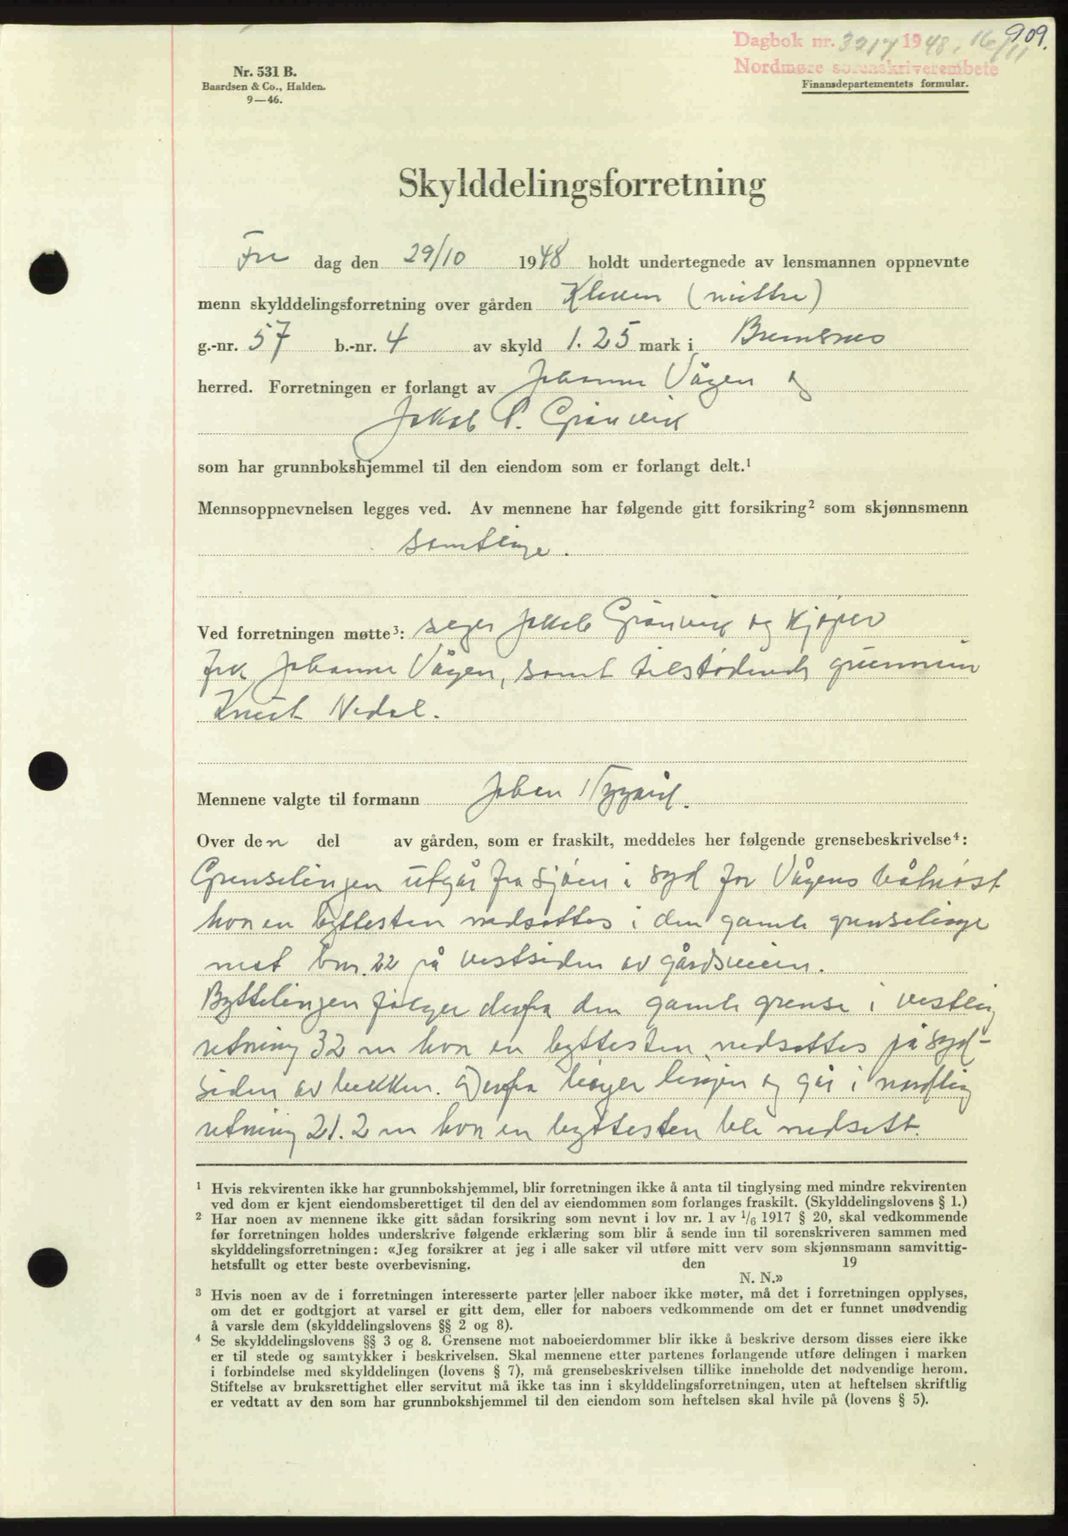 909.
Dagbok nr. 3217 1948, 16/11
Nordmøre sorenskriverembete
Nr. 531 B.
Baardsen & Co., Halden.
9—46.
Finansdepartementets formular.
Skylddelingsforretning
Fre dag den 29/10 1948 holdt undertegnede av lensmannen oppnevnte
menn skylddelingsforretning over gården Kleven (mittre)
g.-nr. 57 b.-nr. 4 av skyld 1.25 mark i Bremsnes
herred. Forretningen er forlangt av Johanne Vågen og
Jakob P. Grønvik
som har grunnbokshjemmel til den eiendom som er forlangt delt.¹
Mennsoppnevnelsen legges ved. Av mennene har følgende gitt forsikring² som skjønnsmenn
samtlige.
Ved forretningen møtte³: Jakob Grønvik og kjøper
frk Johanne Vågen, samt tilstødende
Knut Nedal.
Mennene valgte til formann Johan Nygård.
Over den del av gården, som er fraskilt, meddeles her følgende grensebeskrivelse⁴:
Grenselinjen utgår fra sjøen i syd for Vågens båtnøst
hvor en byttesten nedsettes i den gamle grenselinje
mot bnr. 22 på vestsiden av gårdsveien.
Byttelinjen følger derfra den gamle grense i vestlig
retning 32 m hvor en byttesten nedsettes på syd-
siden av bekken. Derfra linjen og går i nordlig
retning 21.2 m hvor en byttesten ble nedsatt.
¹ Hvis rekvirenten ikke har grunnbokshjemmel, blir forretningen ikke å anta til tinglysing med mindre rekvirenten
ved dom er kjent eiendomsberettiget til den del av eiendommen som forlanges fraskilt. (Skylddelingslovens § 1.)
² Har noen av mennene ikke gitt sådan forsikring som nevnt i lov nr. 1 av 1/6 1917 § 20, skal vedkommende
før forretningen holdes underskrive følgende erklæring som blir å sende inn til sorenskriveren sammen med
skylddelingsforretningen: «Jeg forsikrer at jeg i alle saker vil utføre mitt verv som skjønnsmann samvittig-
hetsfullt og etter beste overbevisning. den 19
N. N.»
³ Hvis noen av de i forretningen interesserte parter eller naboer ikke møter, må det i forretningen opplyses,
om det er godtgjort at varsel er gitt dem, eller for naboers vedkommende om det er funnet unødvendig
å varsle dem (skylddelingslovens §§ 2 og 8).
⁴ Se skylddelingslovens §§ 3 og 8. Grensene mot naboeierdommer blir ikke å beskrive dersom disses eiere ikke
er til stede og samtykker i beskrivelsen. Skal mennene etter partenes forlangende utføre delingen i marken
i forbindelse med skylddelingen (lovens § 7), må grensebeskrivelsen tillike inneholde det nødvendige herom.
Stiftelse av bruksrettighet eller servitut må ikke tas inn i skylddelingsforretningen, uten at heftelsen skriftlig
er vedtatt av den som har grunnbokshjemmel til den eiendom som heftelsen skal hvile på (lovens § 5).